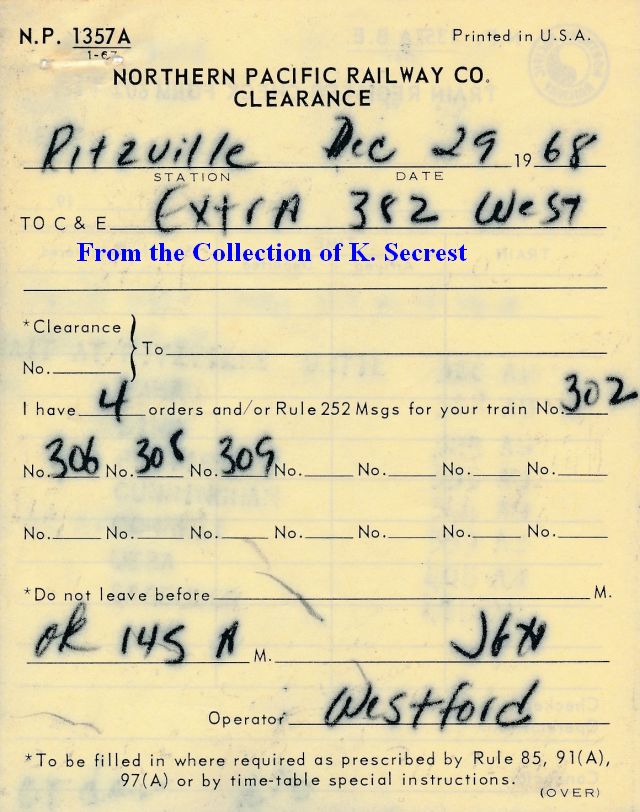 N.P. 1357A Printed in U.S.A.
1-67
NORTHERN PACIFIC RAILWAY CO.
CLEARANCE
Ritzville Dec 29 19 68
STATION DATE
TO C & E Extra 382 West
From the Collection of K. Secrest
*Clearance
No. To
I have 4 orders and/or Rule 252 Msgs for your train No. 302
No. 306 No. 308 No. 309 No. No. No. No.
No. No. No. No. No. No. No.
*Do not leave before M.
OK 145 A M. JGH
Operator Westford
*To be filled in where required as prescribed by Rule 85, 91(A),
97(A) or by time-table special instructions.
(OVER)